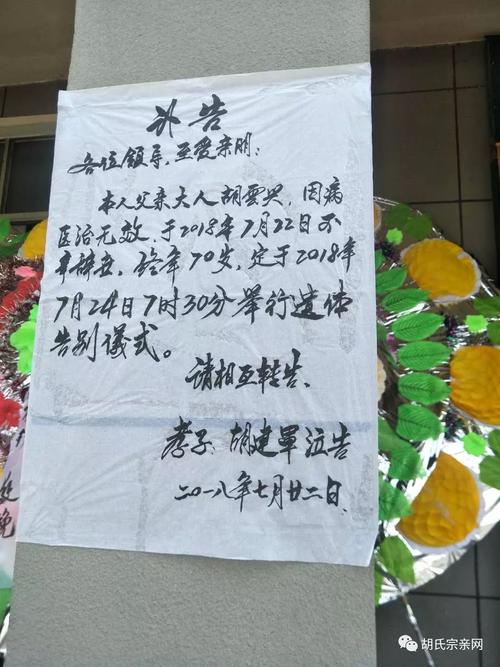 讣告
各位领导、至爱亲朋：
本人父亲大人胡云兴，因病
医治无效，于2018年7月22日不
幸辞世，终年70岁，定于2018年
7月24日7时30分举行遗体
告别仪式。
请相互转告、
孝子：胡建军泣告
二〇一八年七月廿二日、
挽
胡氏宗亲网